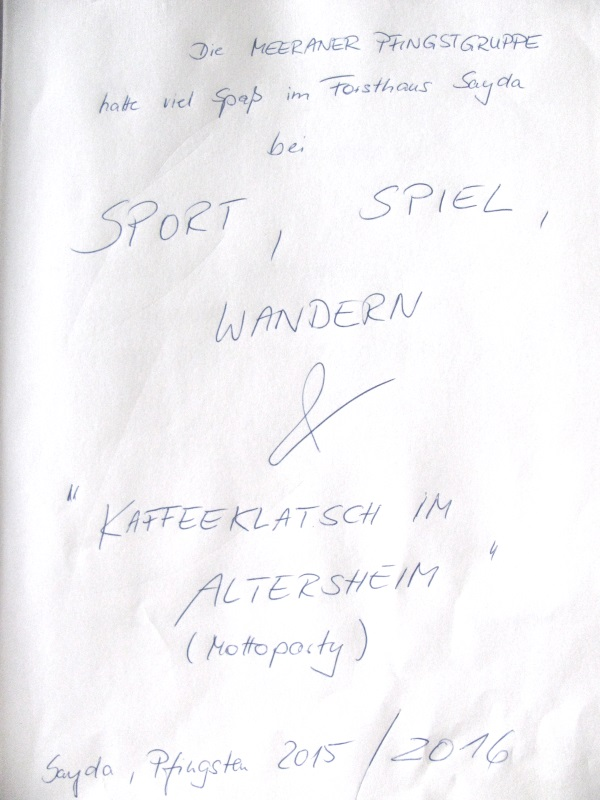 Die MEERANER PFINGSTGRUPPE
hatte viel Spaß im Forsthaus Sayda
bei
SPORT, SPIEL,
WANDERN
&
"KAFFEEKLATSCH IM
ALTERSHEIM"
(Mottoparty)
Sayda, Pfingsten 2015 / 2016